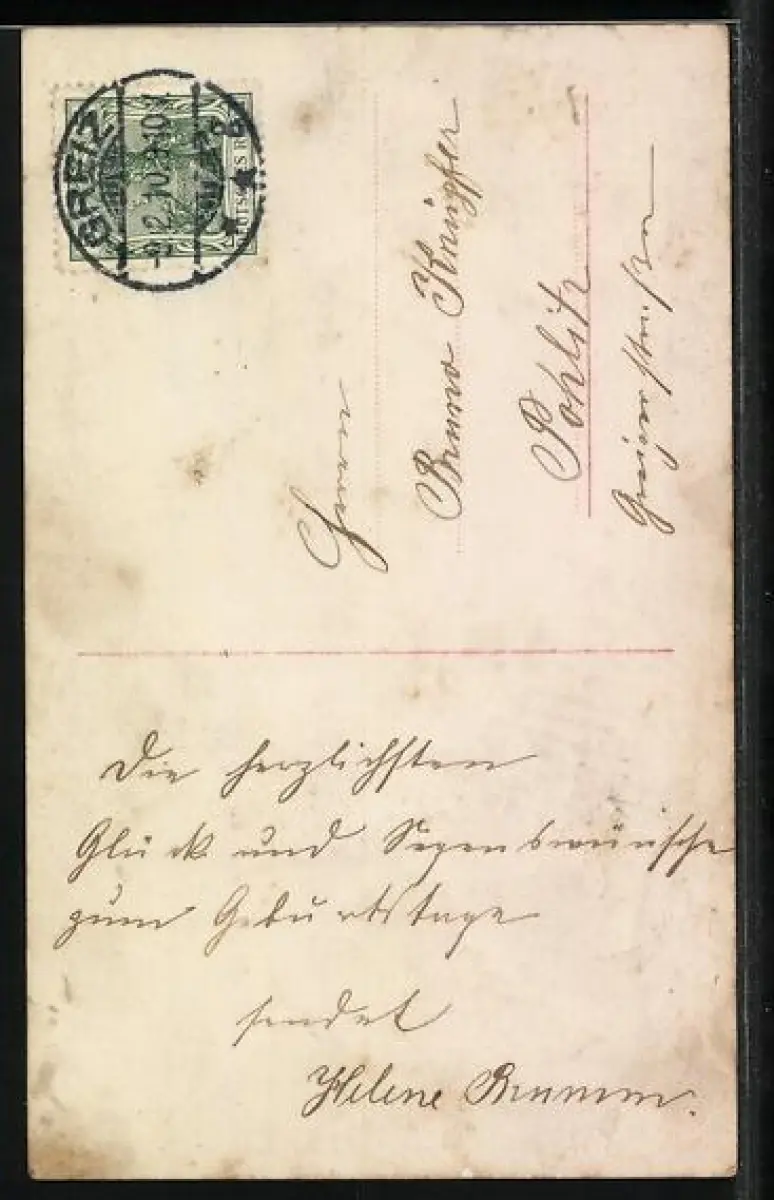 GREIZ
2.10.
DEUTSCHES R
Herrn
Bruno Knüpfer
Pohlitz
Greizerstraße
Die herzlichsten
Glück und Segenswünsche
zum Geburtstage
sendet
Helene Brumm.